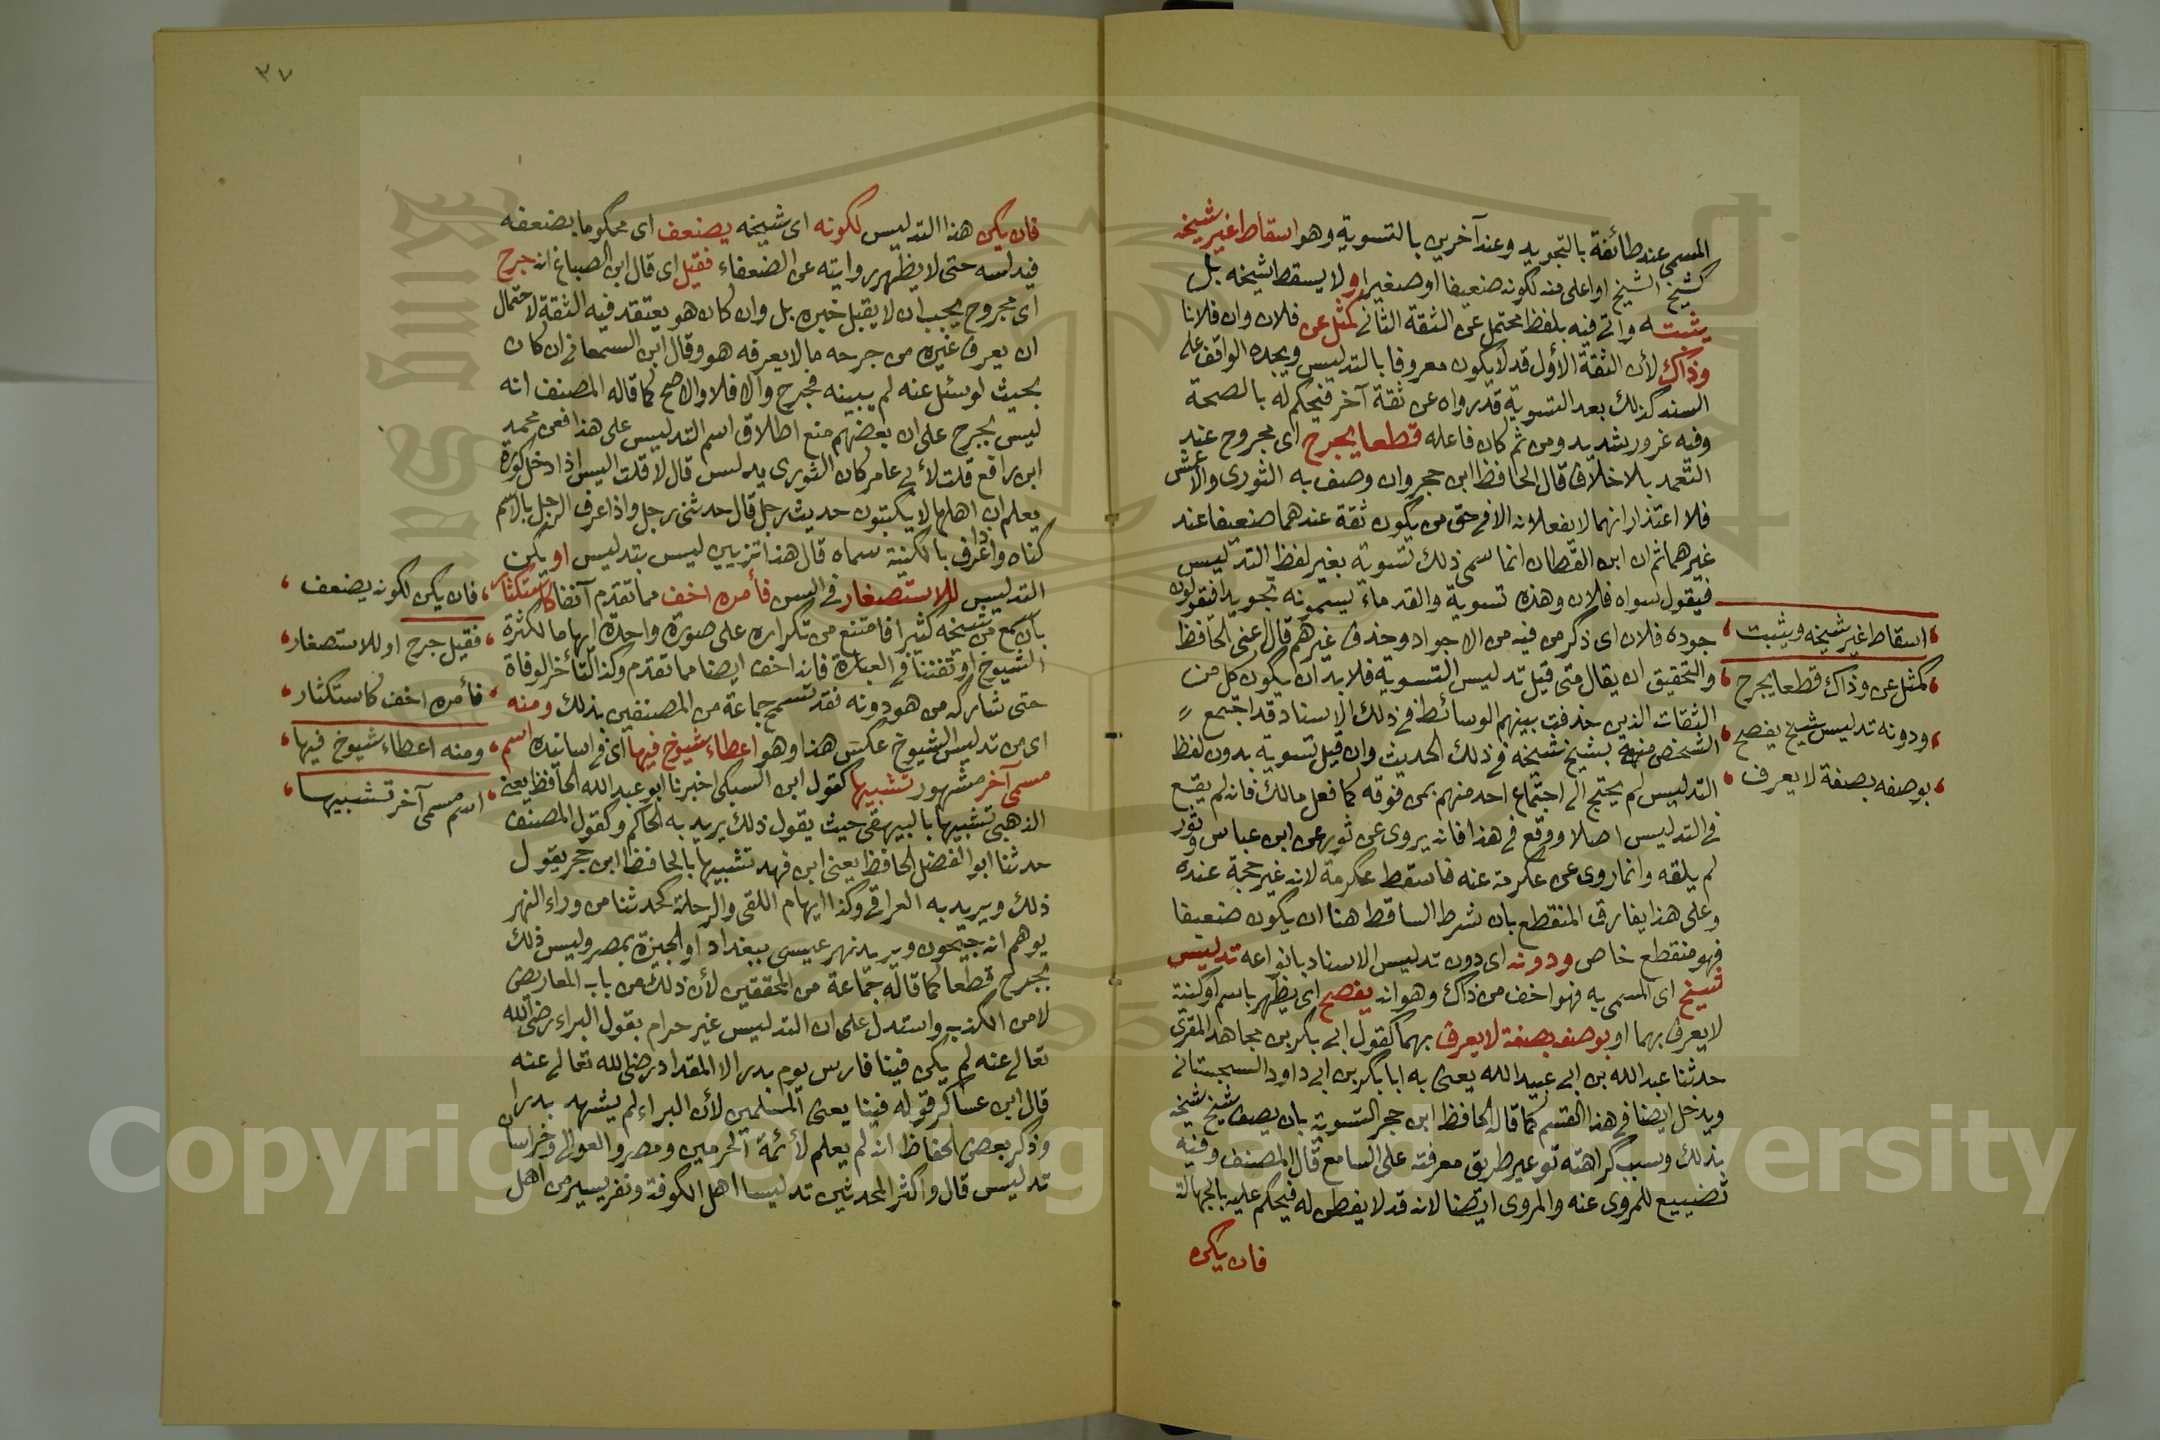 المسمى عند طائفة بالتجويد وعند آخرين بالتسوية وهو اسقاط غير شيخه
كشيخ الشيخ او اعلى منه لكونه ضعيفا او صغيرا و لا يسقط شيخه بل
يثبته واتى فيه بلفظ محتمل عن الثقة الثانى كمثل عن فلان وان فلانا
وذاك لأن الثقة الأول قد لا يكون معروفا بالتدليس ويجده الواقف على
السند كذلك بعد التسوية قد رواه عن ثقة آخر فيحكم له بالصحة
وفيه غرور شديد ومن ثم كان فاعله قطعا يجرح اى مجروح عند
التعمد بلا خلاف قال الحافظ ابن حجر وان وصف به الثورى والاعمش
فلا اعتذار انهما لا يفعلانه الا فى حق من يكون ثقة عندهما ضعيفا عند
غيرهما ثم ان ابن القطان انما سمى ذلك تسوية بغير لفظ التدليس
فيقول سواه فلان وهذه تسوية والقدماء يسمونه تجويدا فيقولون
جوده فلان اى ذكر من فيه من الاجواد وحذف غيرهم قال اعنى الحافظ
والتحقيق ان يقال متى قيل تدليس التسوية فلا بد ان يكون كل من
الثقات الذين حذفت بينهم الوسائط فى ذلك الاسناد قد اجتمع
الشخص منهم بشيخ شيخه فى ذلك الحديث وان قيل تسوية بدون لفظ
التدليس لم يحتج الى اجتماع احد منهم بمن فوقه كما فعل مالك فانه لم يقع
فى التدليس اصلا ووقع فى هذا فانه يروى عن ثور عن ابن عباس وثور
لم يلقه وانما روى عن عكرمة عنه فاسقط عكرمة لانه غير حجة عنده
وعلى هذا يفارق المنقطع بان شرط الساقط هنا ان يكون ضعيفا
فهو منقطع خاص ودونه اى دون تدليس الاسناد بانواعه تدليس
شيخ اى المسمى به فهو اخف من ذاك وهو انه يفصح اى يظهر باسم او كنية
لا يعرف بهما او بوصف بصفة لا يعرف بهما كقول ابى بكر بن مجاهد المقرى
حدثنا عبد الله بن ابى عبيد الله يعنى به ابا بكر بن ابى داود السجستانى
ويدخل ايضا فى هذا القسم كما قاله الحافظ ابن حجر التسوية بان يصف شيخ شيخه
بذلك وسبب كراهته توعير طريق معرفته على السامع قال المصنف وفيه
تضييع للمروى عنه والمروى ايضا لانه قد لا يفطن له فيحكم عليه بالجهالة
فان يكن
اسقاط غير شيخه ويثبت
كمثل عن وذاك قطعا يجرح
ودونه تدليس شيخ يفصح
بوصفه بصفة لا يعرف
٣٧
فان يكن هذا التدليس لكونه اى شيخه يضعف اى محكوما بضعفه
فيدلسه حتى لا يظهر روايته عن الضعفاء فقيل اى قال ابن الصباغ انه جرح
اى مجروح يجب ان لا يقبل خبره بل وان كان هو يعتقد فيه الثقة لاحتمال
ان يعرف غيره من جرحه ما لا يعرفه هو وقال ابن السمعانى ان كان
بحيث لو سئل عنه لم يبينه فجرح والا فلا والاصح كما قاله المصنف انه
ليس بجرح على ان بعضهم منع اطلاق اسم التدليس على هذا فعن محمد
ابن رافع قلت لأبى عامر كان الثورى يدلس قال لا قلت اليس اذا دخل كورة
يعلم ان اهلها لا يكتبون حديث رجل قال حدثنى رجل واذا عرف الرجل بالاسم
كناه واذا عرف بالكنية سماه قال هذا تزيين ليس بتدليس او يكن
التدليس للاستصغار فى السن فأمره اخف مما تقدم آنفا كاستكثار
بان سمع من شيخه كثيرا فامتنع من تكراره على صورة واحدة ايهاما لكثرة
الشيوخ او تفننا فى العبارة فانه اخف ايضا مما تقدم وكذا لتأخر الوفاة
حتى شاركه من هو دونه فقد تسمح جماعة من المصنفين بذلك ومنه
اى من تدليس الشيوخ عكس هذا وهو اعطاء شيوخ فيها اى فى اسانيده اسم
مسمى آخر مشهور تشبيها كقول ابن السبكى اخبرنا ابو عبد الله الحافظ يعنى
الذهبى تشبيها بالبيهقى حيث يقول ذلك يريد به الحاكم وكقول المصنف
حدثنا ابو الفضل الحافظ يعنى ابن فهد تشبيها بالحافظ ابن حجر يقول
ذلك ويريد به العراقى وكذا ايهام اللقى والرحلة كحدثنا من وراء النهر
يوهم انه جيحون ويريد نهر عيسى ببغداد او الجيزة بمصر وليس ذلك
بجرح قطعا كما قاله جماعة من المحققين لأن ذلك من باب المعاريض
لا من الكذب واستدل على ان التدليس غير حرام بقول البراء رضى الله
تعالى عنه لم يكن فينا فارس يوم بدر الا المقداد رضى الله تعالى عنه
قال ابن عساكر قوله فينا يعنى المسلمين لأن البراء لم يشهد بدرا
وذكر بعض الحفاظ انه لم يعلم لأئمة الحرمين ومصر والعوالى وخراسان
تدليس قال واكثر المحدثين تدليسا اهل الكوفة ونفر يسير من اهل
فان يكن لكونه يضعف
فقيل جرح او للاستصغار
فأمره اخف كاستكثار
ومنه اعطاء شيوخ فيها
اسم مسمى آخر تشبيها
Copyright © King Saud University